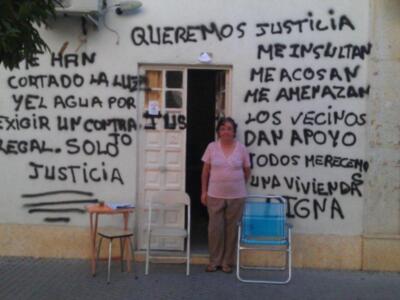 QUEREMOS JUSTICIA
ME HAN
CORTADO LA LUZ
Y EL AGUA POR
EXIGIR UN CONTRA
TO
REGAL. SOLO
JUSTICIA
JUS
ME INSULTAN
ME ACOSAN
ME AMENAZAN
LOS VECINOS
DAN APOYO
TODOS MERECEMOS
UNA VIVIENDA
DIGNA